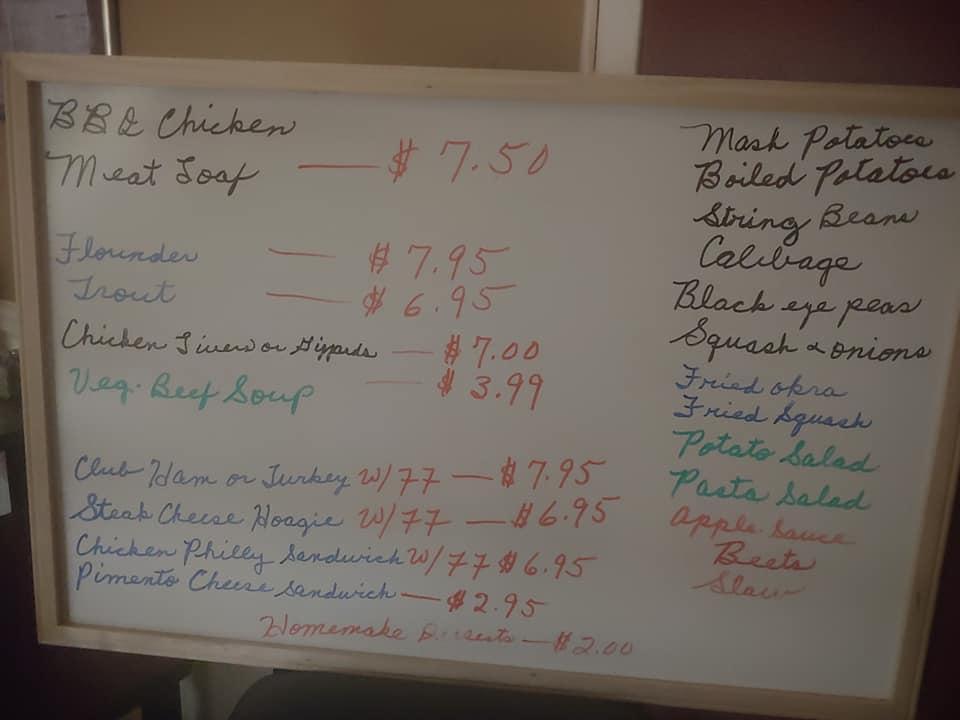 BBQ Chicken
Meat Loaf — $ 7.50
Flounder — $ 7.95
Trout — $ 6.95
Chicken Livers or Gizzards — $ 7.00
Veg. Beef Soup — $ 3.99
Club Ham or Turkey w/ FF — $ 7.95
Steak Cheese Hoagie w/ FF — $ 6.95
Chicken Philly Sandwich w/ FF $ 6.95
Pimento Cheese Sandwich — $ 2.95
Homemake Desserts — $ 2.00
Mash Potatoes
Boiled Potatoes
String Beans
Cabbage
Black eye peas
Squash & onions
Fried okra
Fried Squash
Potato Salad
Pasta Salad
Apple Sauce
Beets
Slaw